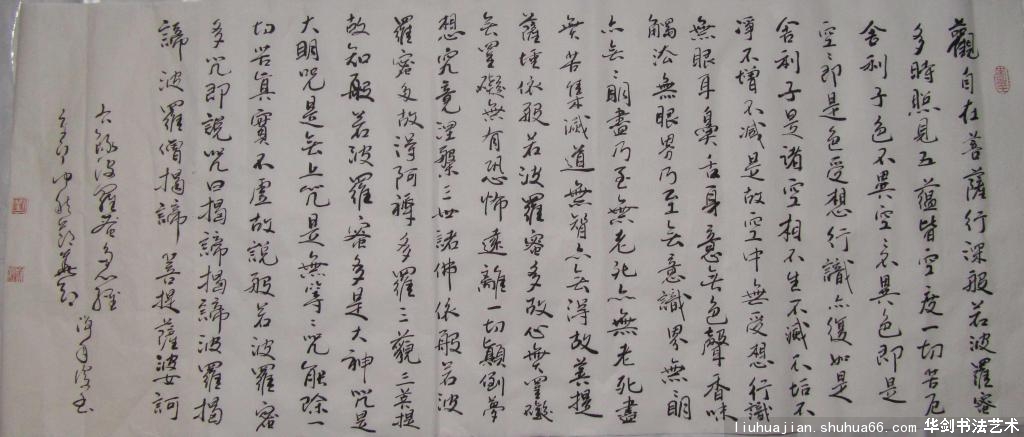 觀自在菩薩行深般若波羅密
多時照見五蘊皆空度一切苦厄
舍利子色不異空空不異色色即是
空空即是色受想行識亦復如是
舍利子是諸空相不生不滅不垢不
淨不增不減是故空中無受想行識
無眼耳鼻舌身意無色聲香味
觸法無眼界乃至無意識界無明
亦無明盡乃至無老死亦無老死盡
無苦集滅道無智亦無得故菩提
薩埵依般若波羅密多故心無罣礙
無罣礙無有恐怖遠離一切顛倒夢
想究竟涅槃三世諸佛依般若波
羅密多故得阿耨多羅三藐三菩提
故知般若波羅密多是大神咒是
大明咒是無上咒是無等等咒能除一
切苦真實不虛故說般若波羅密
多咒即說咒曰揭諦揭諦波羅揭
諦波羅僧揭諦 菩提薩婆訶
liuhuajian.shuhua66.com 华剑书法艺术